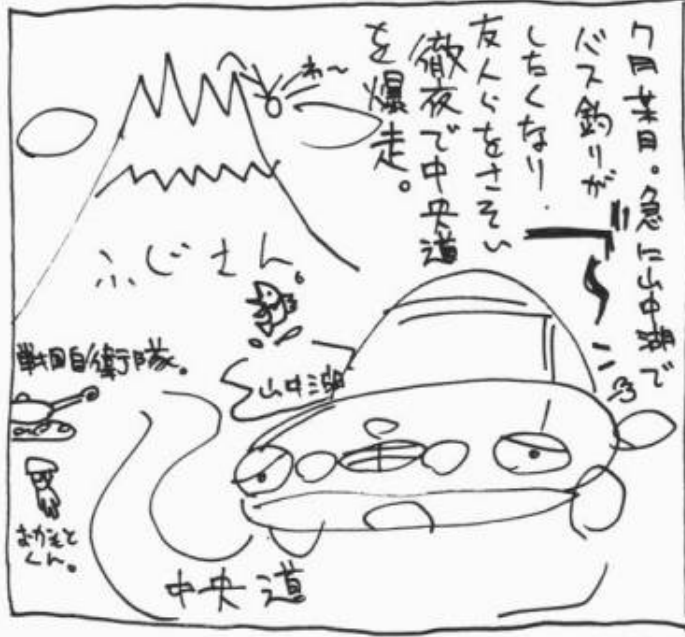 7月某日。急に山中湖で
バス釣りが
したくなり、
友人らをさそい
徹夜で中央道
を爆走。
わ〜
ふじさん
山中湖
戦国自衛隊。
おかもと
くん。
中央道